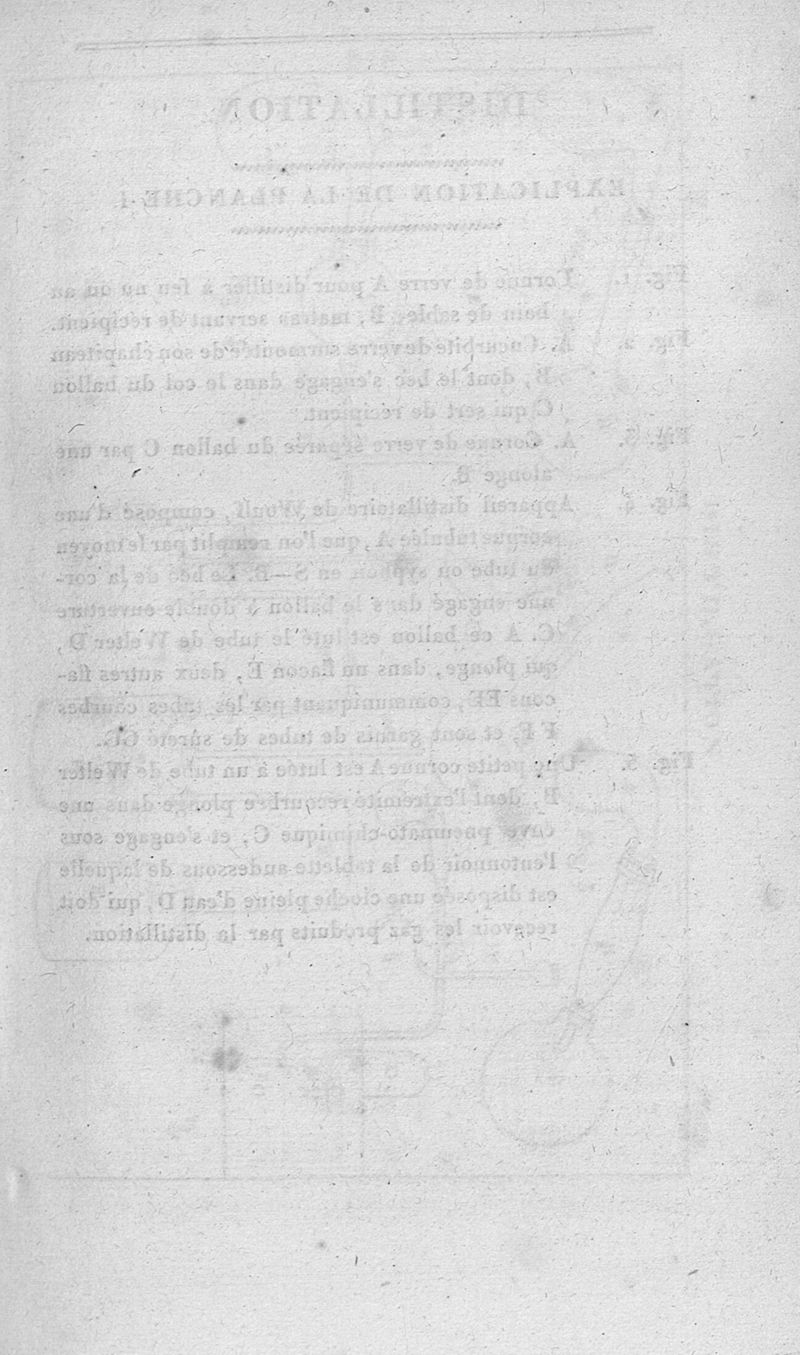 DISTILLATION
EXPLICATION DE LA PLANCHE 1
Fig. 1. Cornue de verre A pour distiller à feu nu ou au
bain de sable; B, matras servant de récipient.
Fig. 2. A. Cucurbite de verre surmontée de son chapiteau
B, dont le bec s'engage dans le col du ballon
C qui sert de récipient.
Fig. 3. A. Cornue de verre séparée du ballon C par une
alonge B.
Fig. 4. Appareil distillatoire de Woulf, composé d'une
cornue tubulée A, que l'on remplit par le moyen
du tube ou syphon en S—B. Le bec de la cor-
nue engagé dans le ballon à double ouverture
C. A ce ballon est luté le tube de Welter D,
qui plonge, dans un flacon E, deux autres fla-
cons EE, communiquant par les tubes courbes
F F, et sont garnis de tubes de sûreté GG.
Fig. 5. Une petite cornue A est lutée à un tube de Welter
B, dont l'extrémité recourbée plonge dans une
cuve pneumato-chimique C, et s'engage sous
l'entonnoir de la tablette audessous de laquelle
est disposée une cloche pleine d'eau D, qui doit
recevoir les gaz produits par la distillation.